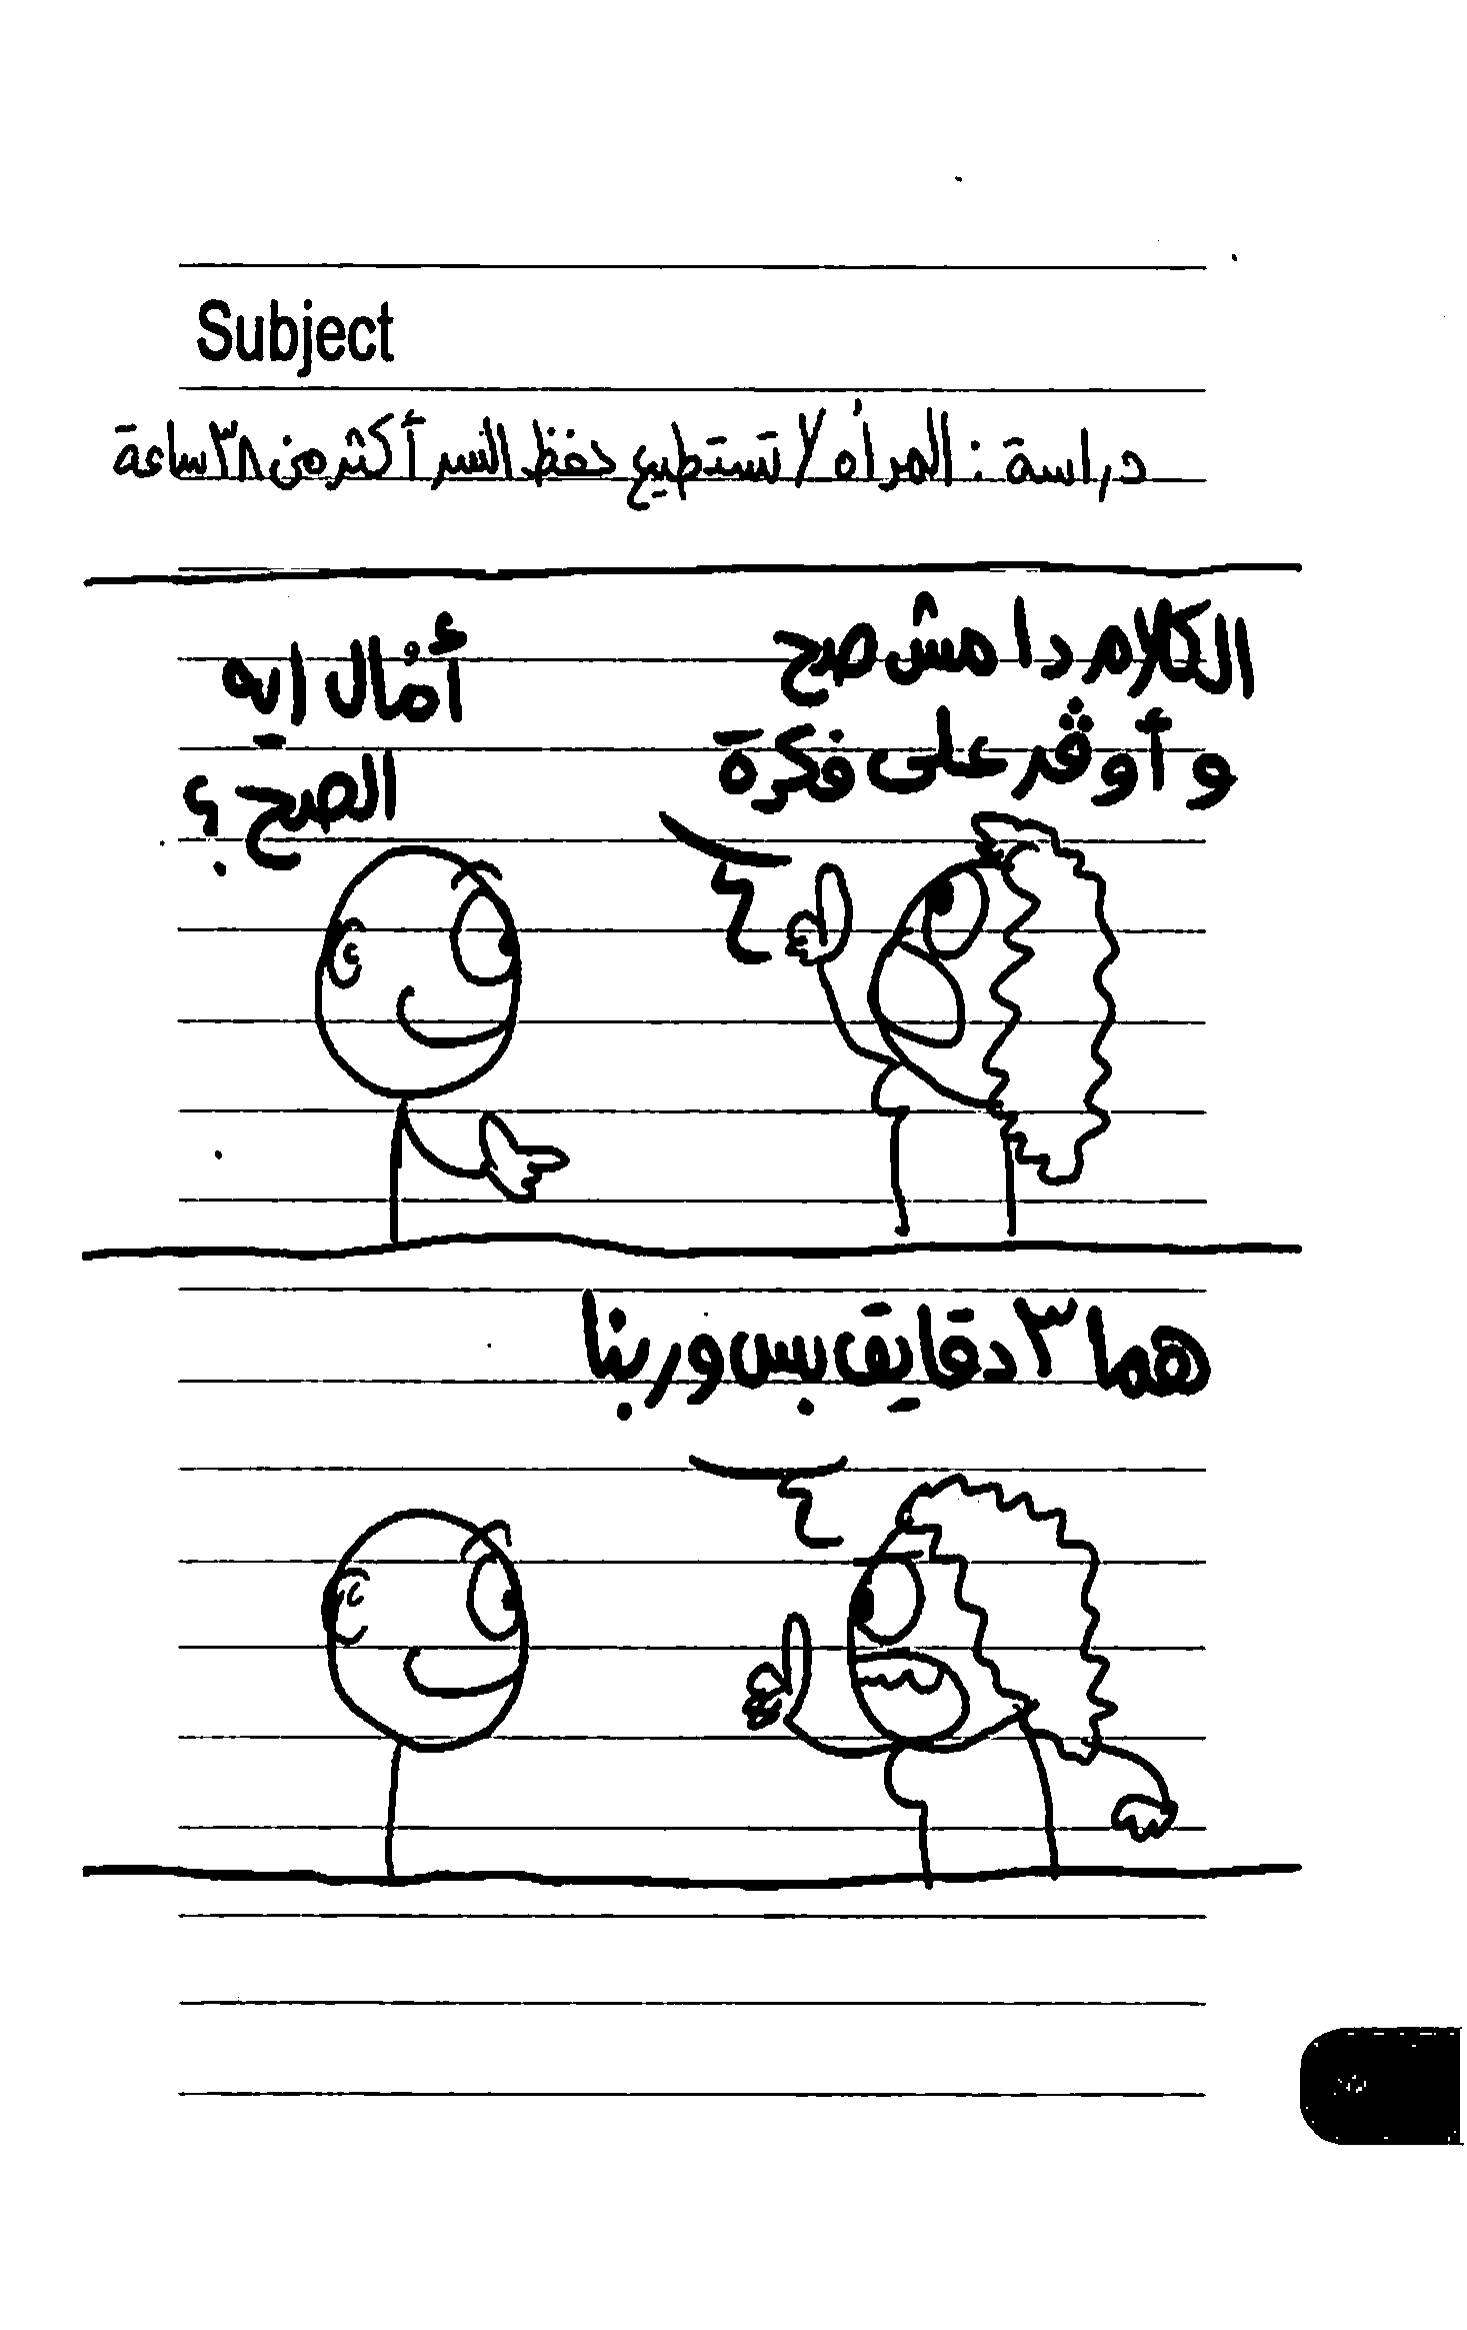 Subject
دراسة : المرأه لا تستطيع حفظ السر أكثر من ٣٨ ساعة
الكلام دا مش صح
و أوڤر على فكرة
أمال ايه
الصح ؟
هما ٣ دقايق بس وربنا